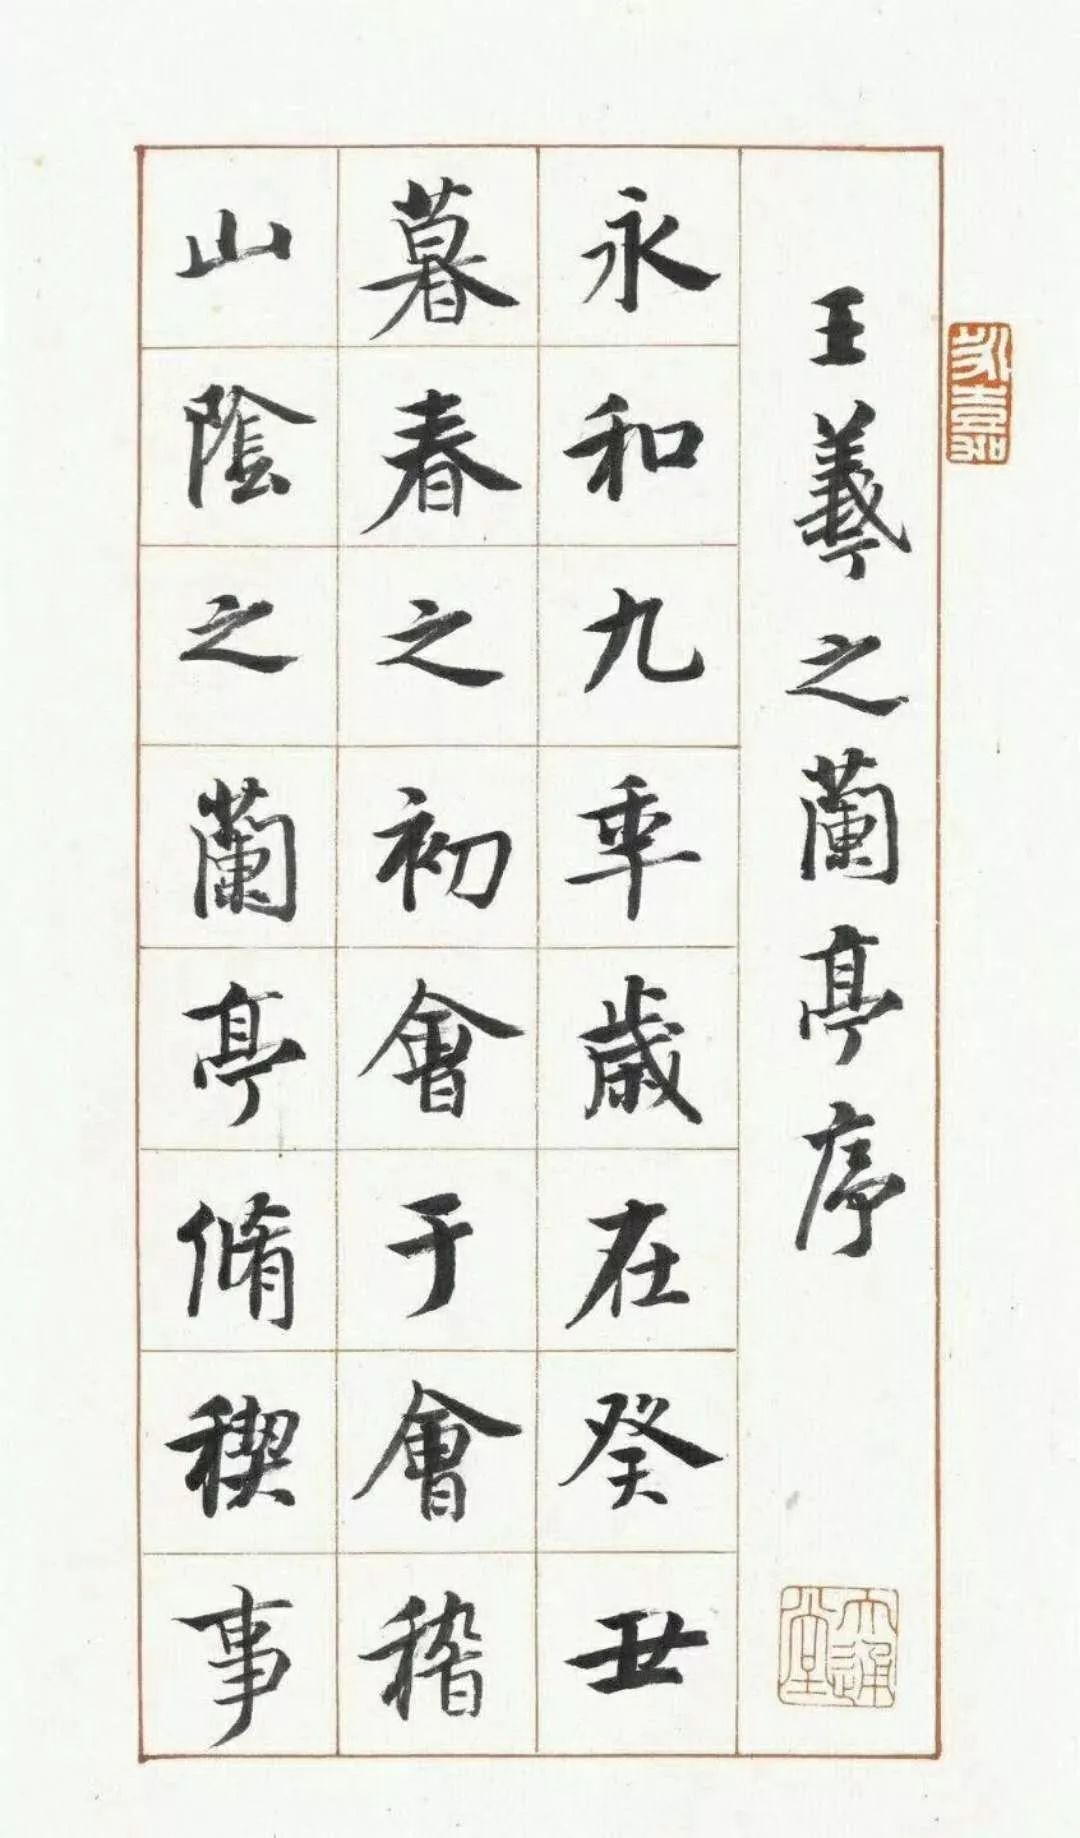 永嘉
王羲之蘭亭序
永和九年歲在癸丑
暮春之初會于會稽
山陰之蘭亭脩稧事